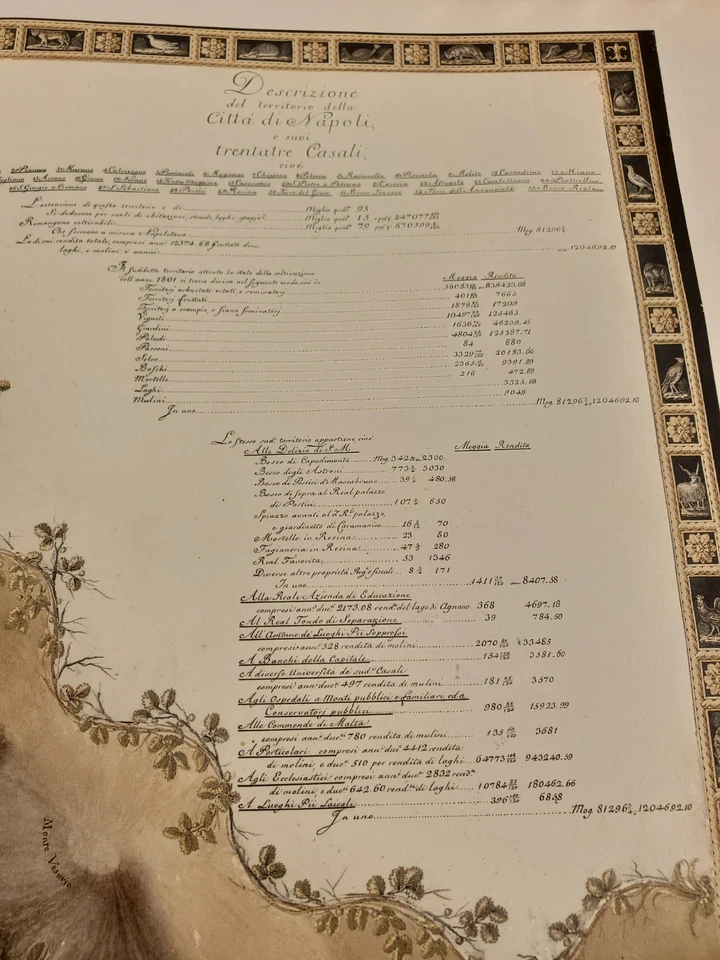 Descrizione
del territorio della
Cittá di Napoli,
e suoi
trentatre Casali,
cioé.
2.Pianura 3.Marano 4.Calvizzano 5.Panicocoli 6.Mugnano 7.Chiajano 8.Polvica 9.Marianella 10.Piscinola 11.Melito 12.Casandrino 13.Miano
15.Arzano 16.Grumo 17.Frattamaggiore 19.Casavatore 20.S.Pietro a Patierno 21.Casoria 22.Afragola 23.Casalnuovo 24.Ponticelli
26.S.Giorgio a Cremano 27.S.Sebastiano 28.Portici 29.Resina 30.Torre del Greco 32.Torre dell'Annunziata 33.Bosco Reale
L'estensioni di questo territorio è di Miglia quad.e 95
Si deducono per suoli di abitazioni, strade, laghi, spazj &c. Miglia quad.e 15
Rimangono coltivabili Miglia quad.e 79
Che formano a misura Napoletana Mog. 81296
La di cui rendita totale, compresi ann.i 12374.68 fruttato de
laghi, e molini, e annui 1204692.10
Il suddetto territorio attento lo stato della coltivazione
dell'anno 1801 si trova diviso nel seguenti modo, cioè in Moggia Rendita
Territorj arbustati vitati e seminatorj 56083 839425.08
Territorj fruttati 401 7665
Territorj a scampie, e siano seminatorj 1878 17209
Vigneti 10497 125463
Giardini 1636 46239.45
Paludi 4804 125387.71
Pasconi 84 880
Selve 3329 20183.60
Boschi 2365 9391.89
Mortelle 216 472.69
Laghi 3325.68
Mulini 9049
In uno Mog. 81296 1204692.10
Lo stesso sud.o territorio appartiene, cioè
Alle Delizie di S.M. Moggia Rendita
Bosco di Capodimonte Mog. 342 2300
Bosco degli Astroni 773 3030
Bosco di Portici d.o Mascabruno 39 480.58
Bosco di sopra al Real palazzo
di Portici 107 650
Spiazzo avanti al d.o R.l palazzo,
e giardinetto di Caramanico 16 70
Mortelle in Resina 23 80
Fagianeria in Resina 47 280
Real Favorita 53 1346
Diverse altre proprietà Reg.e fiscali 8 171
In uno 1411 8407.58
Alla Reale Azienda di Educazione
compresi ann.i duc.ti 2173.08 rend.a del lago di Agnano 368 4697.18
Al Real Fondo di Separazione 39 784.50
All'Amm.ne de'Luoghi Pii soppressi
compresi ann.i 528 rendita di molini 2070 33485
A Banchi della Capitale 154 3581.60
A diverse Università de sud.i Casali
compresi ann.i duc.ti 497 rendita di mulini 181 3570
Agli Ospedali a Monti pubblici e familiari ed a
Conservatorj pubblici 980 15923.99
Alle Commende di Malta
compresi ann.i duc.ti 780 rendita di mulini 135 3681
A Particolari compresi ann.i duc.ti 4412 rendita
di molini, e duc.ti 510 per rendita di laghi 64773 943240.59
Agli Ecclesiastici compresi ann.i duc.ti 2832 rend.a
di molini, e duc.ti 642.60 rend.a di laghi 10784 180462.66
A Luoghi Pii Laicali 396 6858
In uno Mog. 81296 1204692.10
Monte Vesuvio